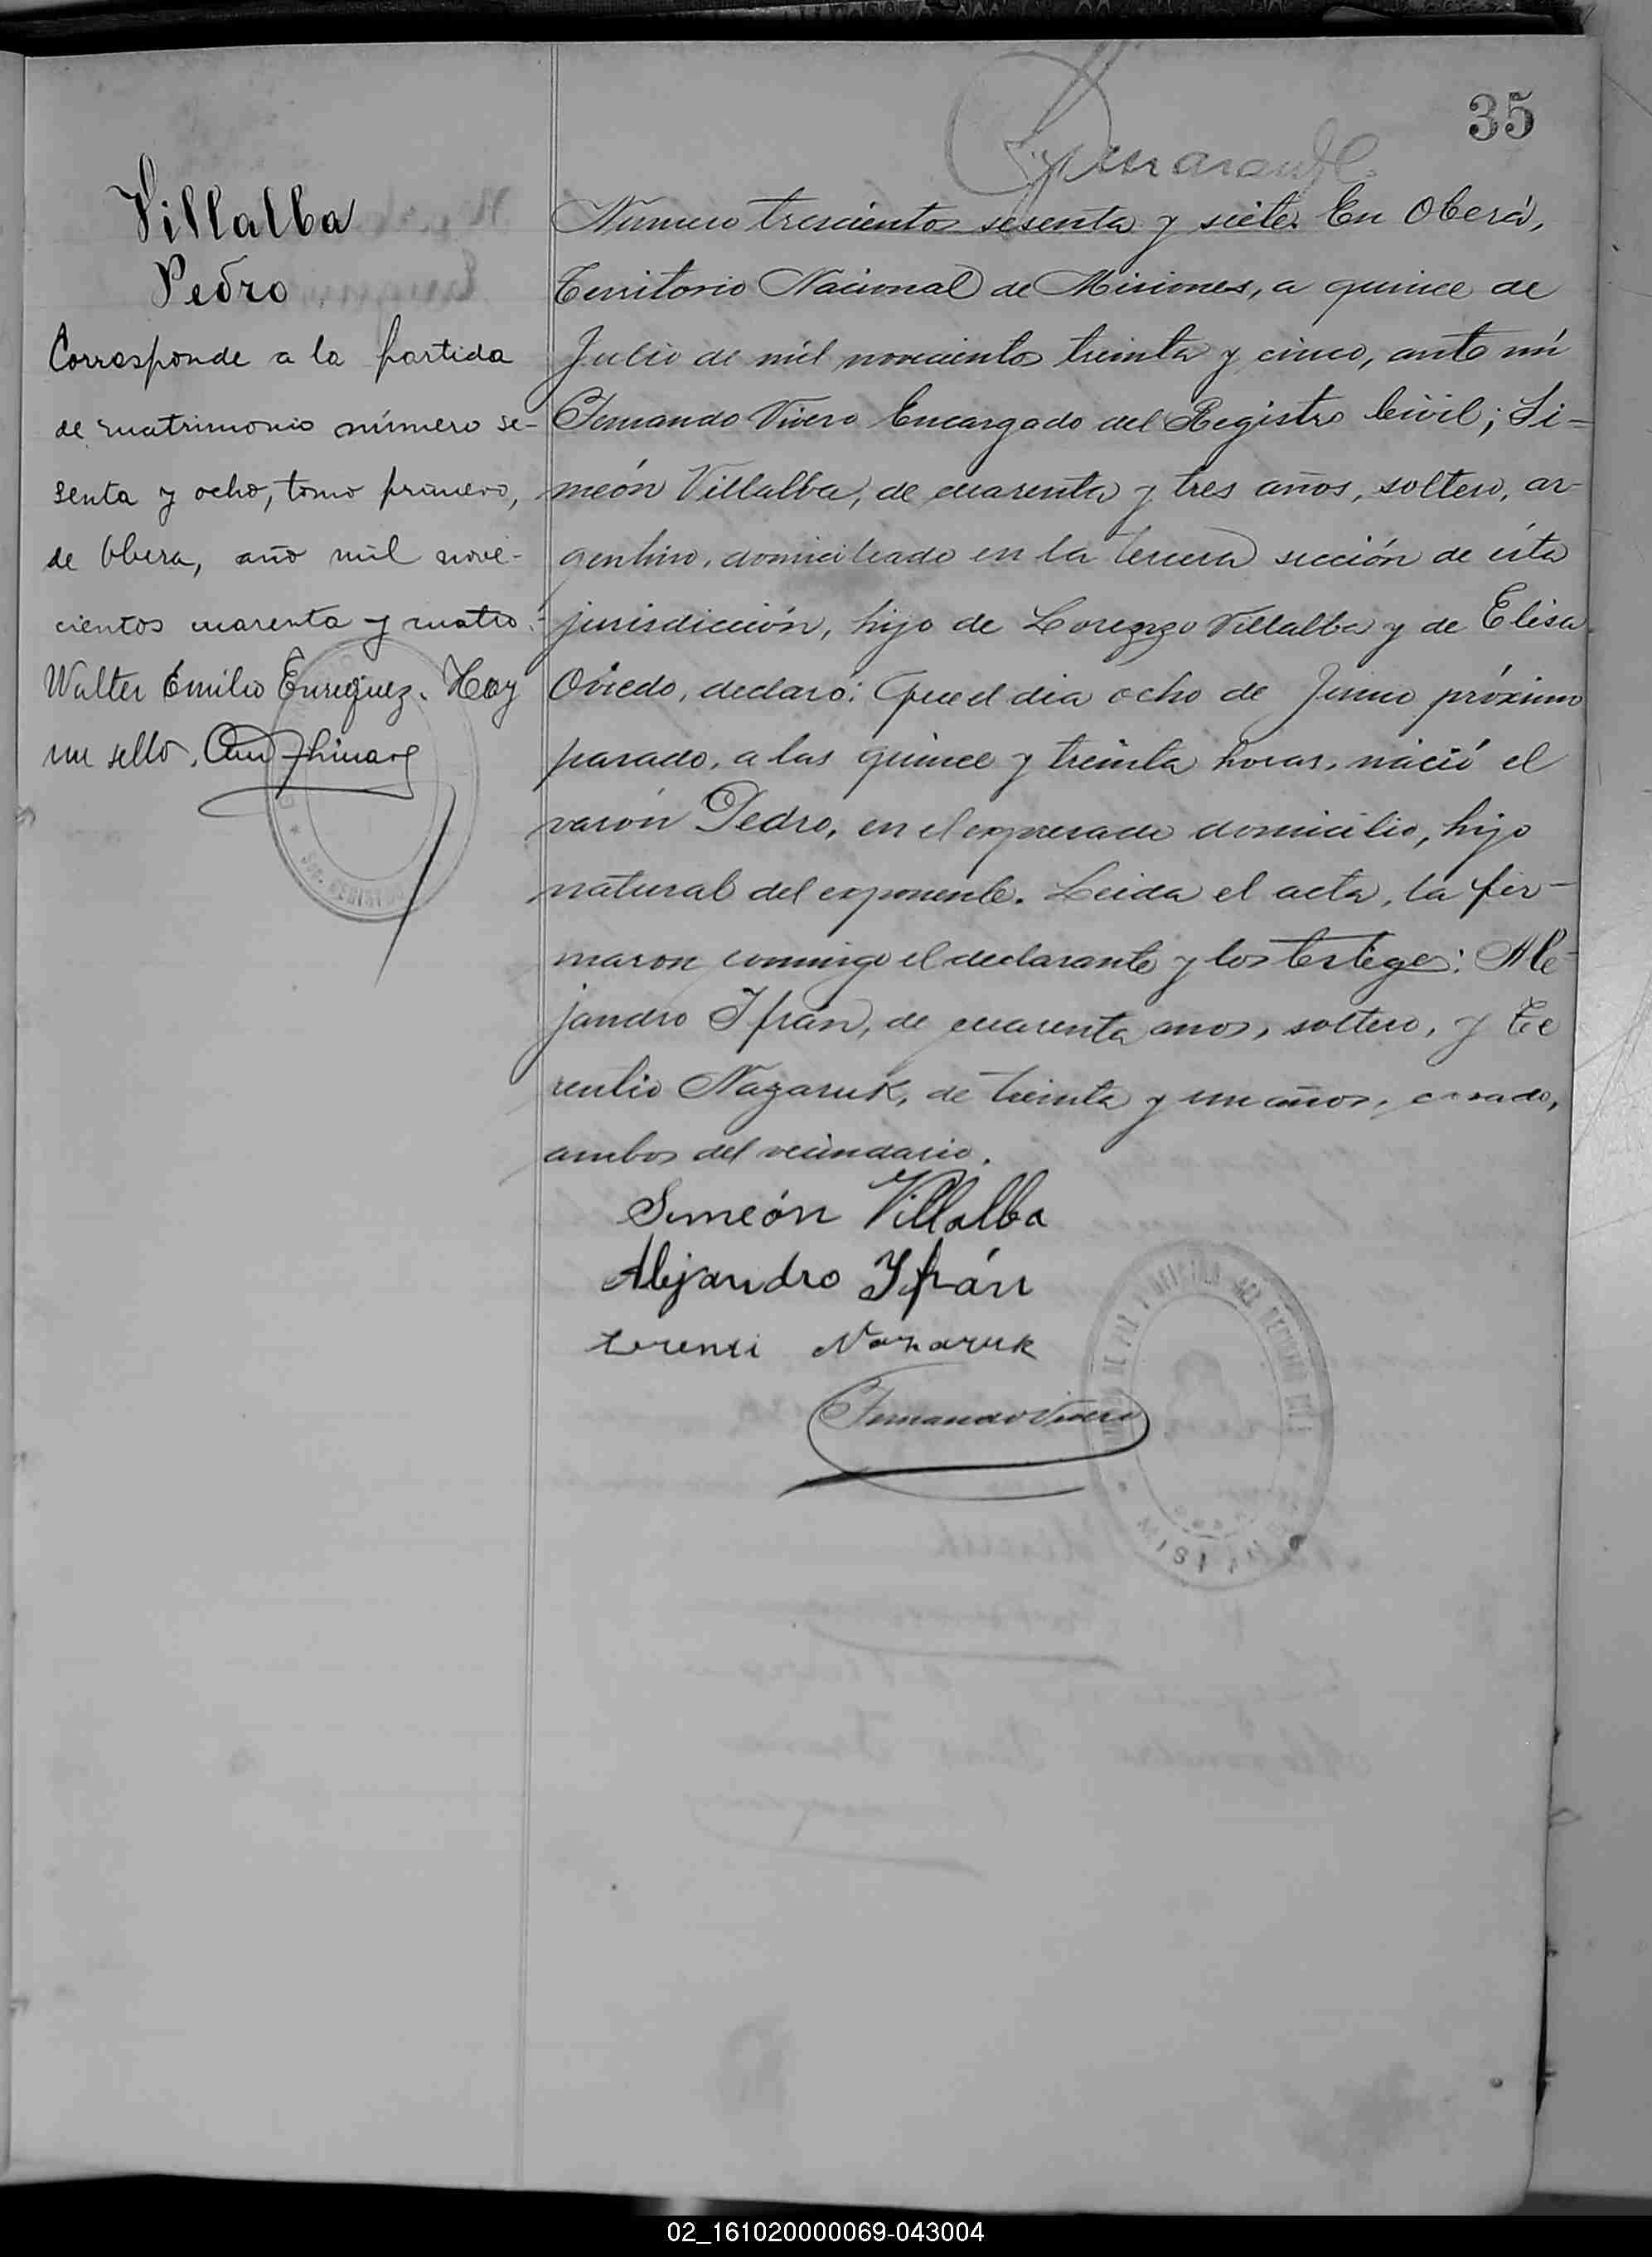 35
Villalba
Pedro
Corresponde a la partida
de matrimonio número se-
senta y ocho, tomo primero,
de Obera, año mil nove-
cientos cuarenta y cuatro.-
Walter Emilio Enrequez. Hay
un sello.
Número trescientos sesenta y siete. En Oberá,
Territorio Nacional de Misiones, a quince de
Julio de mil novecientos treinta y cinco, ante mí
Fernando Vivero Encargado del Registro Civil; Si-
meón Villalba, de cuarenta y tres años, soltero, ar-
gentino, domiciliado en la tercera sección de ésta
jurisdicción, hijo de Lorenzo Villalba y de Elisa
Oviedo, declaró: Que el dia ocho de Junio próximo
pasado, a las quince y treinta horas, nació el
varón Pedro, en el expresado domicilio, hijo
natural del exponente. Leida el acta, la fir-
maron conmigo el declarante y los testigos: Ale-
jandro Ifrán, de cuarenta anos, soltero, y Te
rentio Nazaruk, de treinta y un años, casado,
ambos del vecindario.
Simeón Villalba
Alejandro Yfrán
terenti Nazaruk
Fernando Vivero
02_161020000069-043004